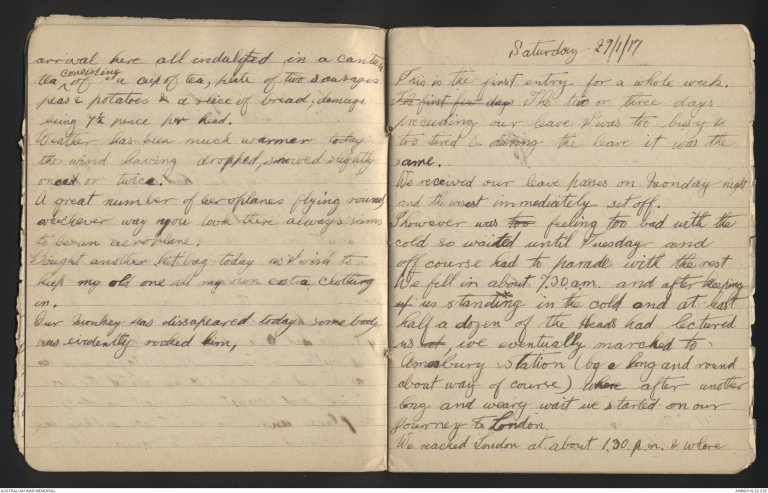 arrival here all indulged in a canteen
tea consisting of a cup of tea, plate of two sausages
peas & potatoes & a slice of bread; damage
being 7½ pence per head.
Weather has been much warmer today
the wind having dropped, snowed slightly
once or twice.
A great number of aeroplanes flying round
whichever way you look there always seems
to be an aeroplane.
Bought another kit bag today as I wish to
keep my old one all my own extra clothing
in.
Our monkey has dissapeared today some body
has evidently rocked him,
Saturday 27/1/17
This is the first entry for a whole week.
The first few days The two or three days
preceeding our leave I was too busy &
too tired & during the leave it was the
same.
We received our leave passes on Monday night
and the most immediately set off.
I however was too feeling too bad with the
cold so waited until Tuesday and
off course had to parade with the rest
We fell in about 7.30 a.m. and after keeping
up us standing in the cold and at least
half a dozen of the Heads had lectured
us, we eventually marched to
Amesbury Station (by a long and round
about way of course) where after another
long and weary wait we started on our
journey to London.
We reached London at about 1.30. p.m. & where
AUSTRALIAN WAR MEMORIAL